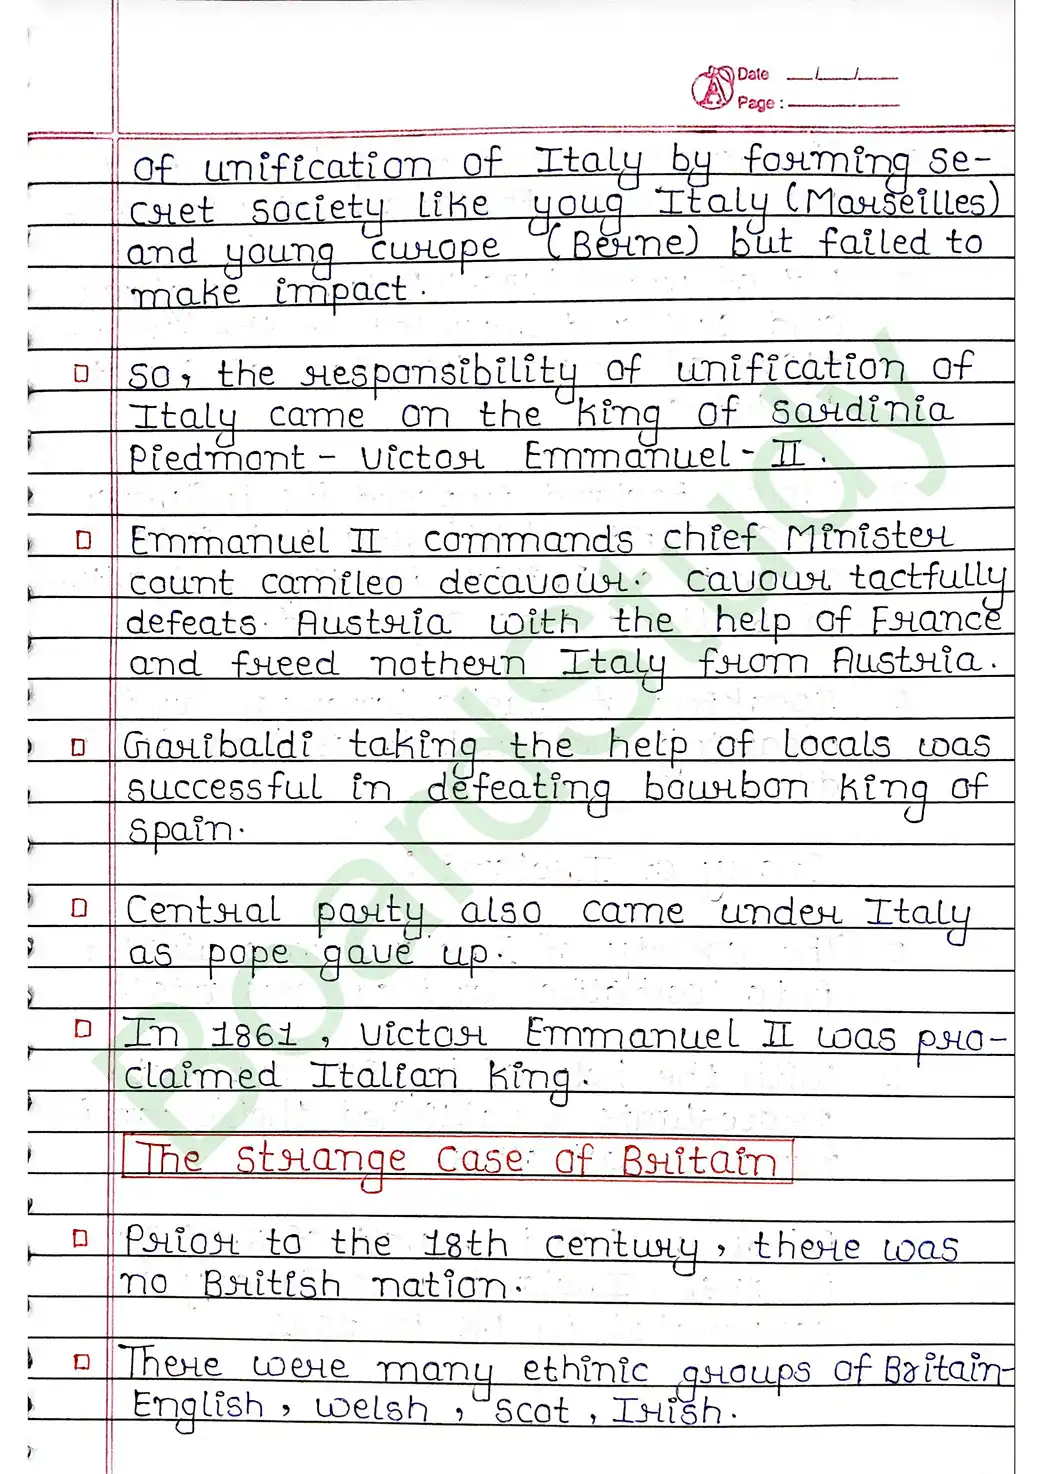 Date __/__/__
Page :
of unification of Italy by forming se-
cret society like youg Italy (Marseilles)
and young europe (Berne) but failed to
make impact.
So, the responsibility of unification of
Italy came on the king of Sardinia
Piedmont - Victor Emmanuel - II.
Emmanuel II commands chief Minister
count camileo decavour. Cavour tactfully
defeats Austria with the help of France
and freed nothern Italy from Austria.
Garibaldi taking the help of locals was
successful in defeating bourbon king of
Spain.
Central party also came under Italy
as pope gave up.
In 1861, Victor Emmanuel II was pro-
claimed Italian king.
The Strange Case of Britain
Prior to the 18th century, there was
no British nation.
There were many ethinic groups of Britain-
English, Welsh, Scot, Irish.
BoardStudy